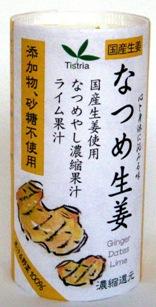 Tistria
国産生姜
なつめ生姜
国産生姜使用
なつめやし濃縮果汁
ライム果汁
添加物、砂糖不使用
Ginger
Dates
Lime
濃縮還元